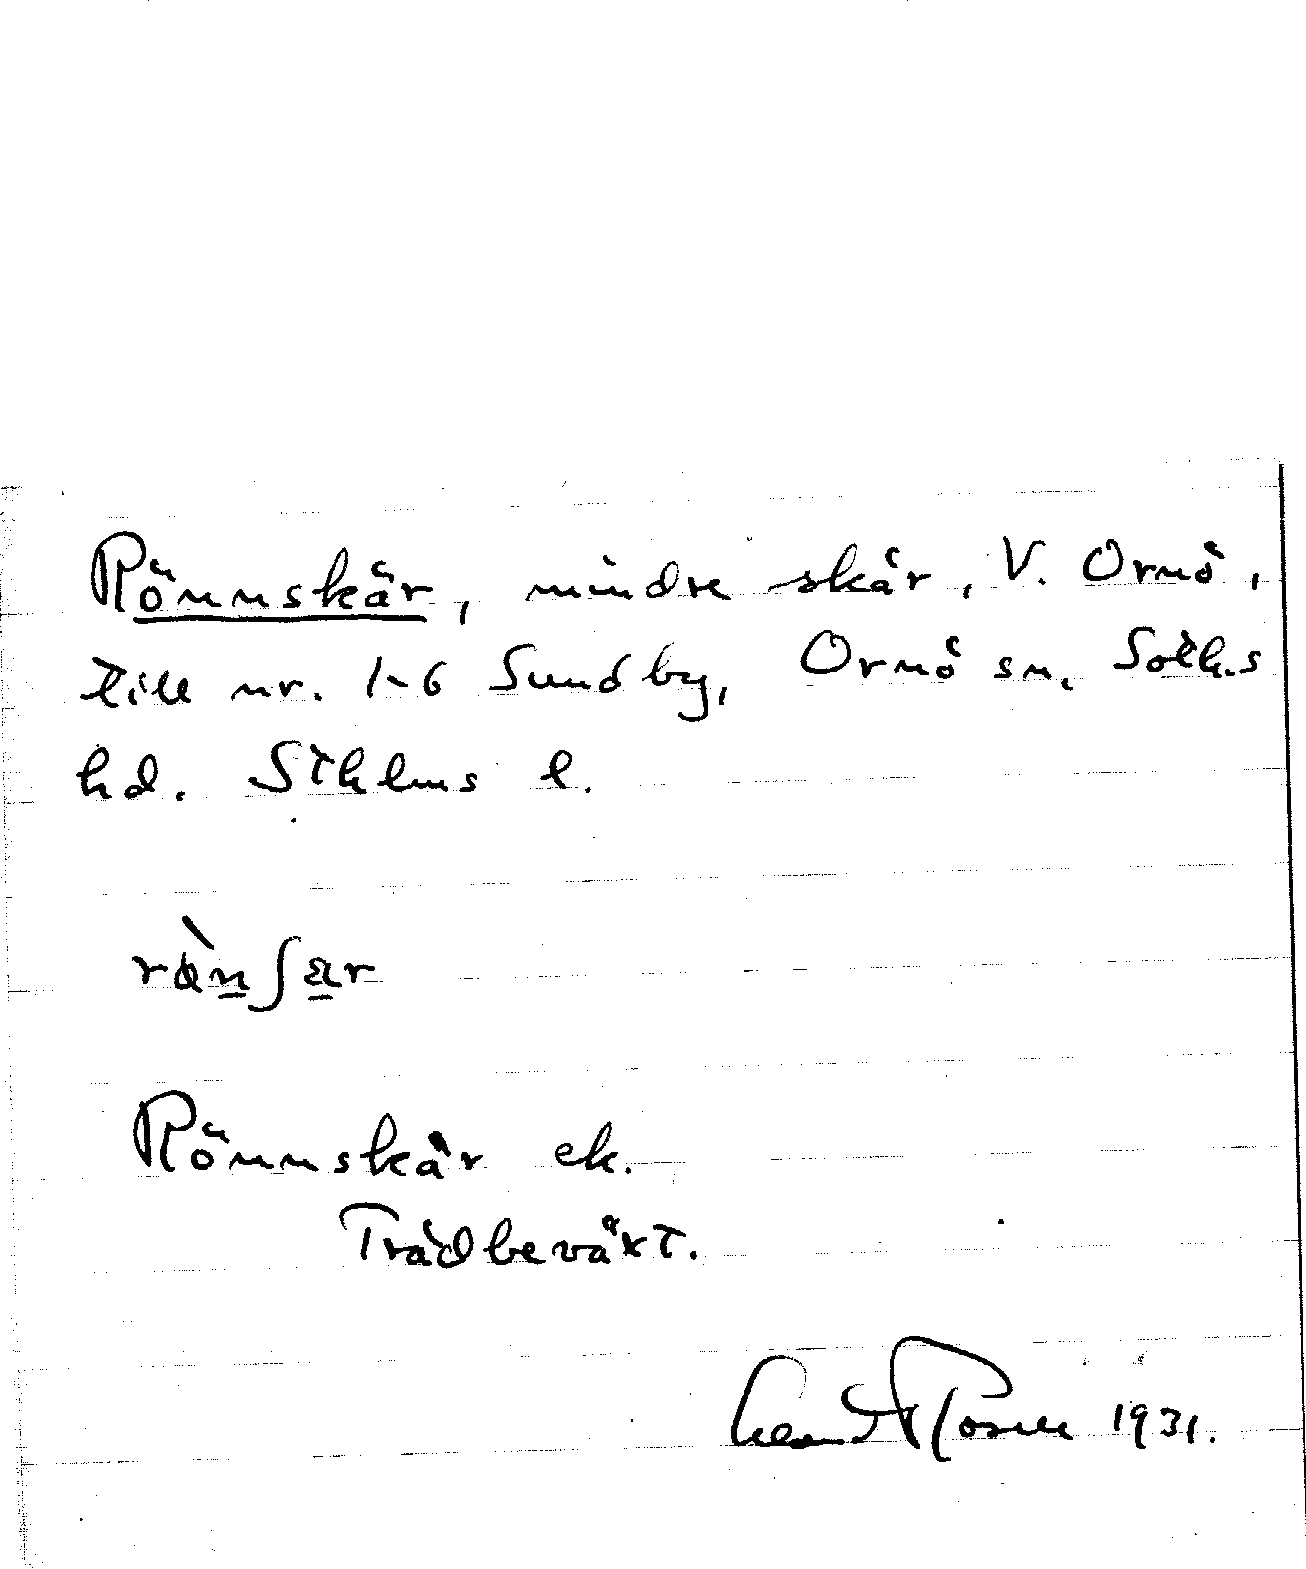 Rönnskär, mindre skär, V. Ornö,
till nr. 1-6 Sundby, Ornö sn, Soth.s
hd. Sthlms l.
Rönnskär ek.
Trädbeväxt.
1931.